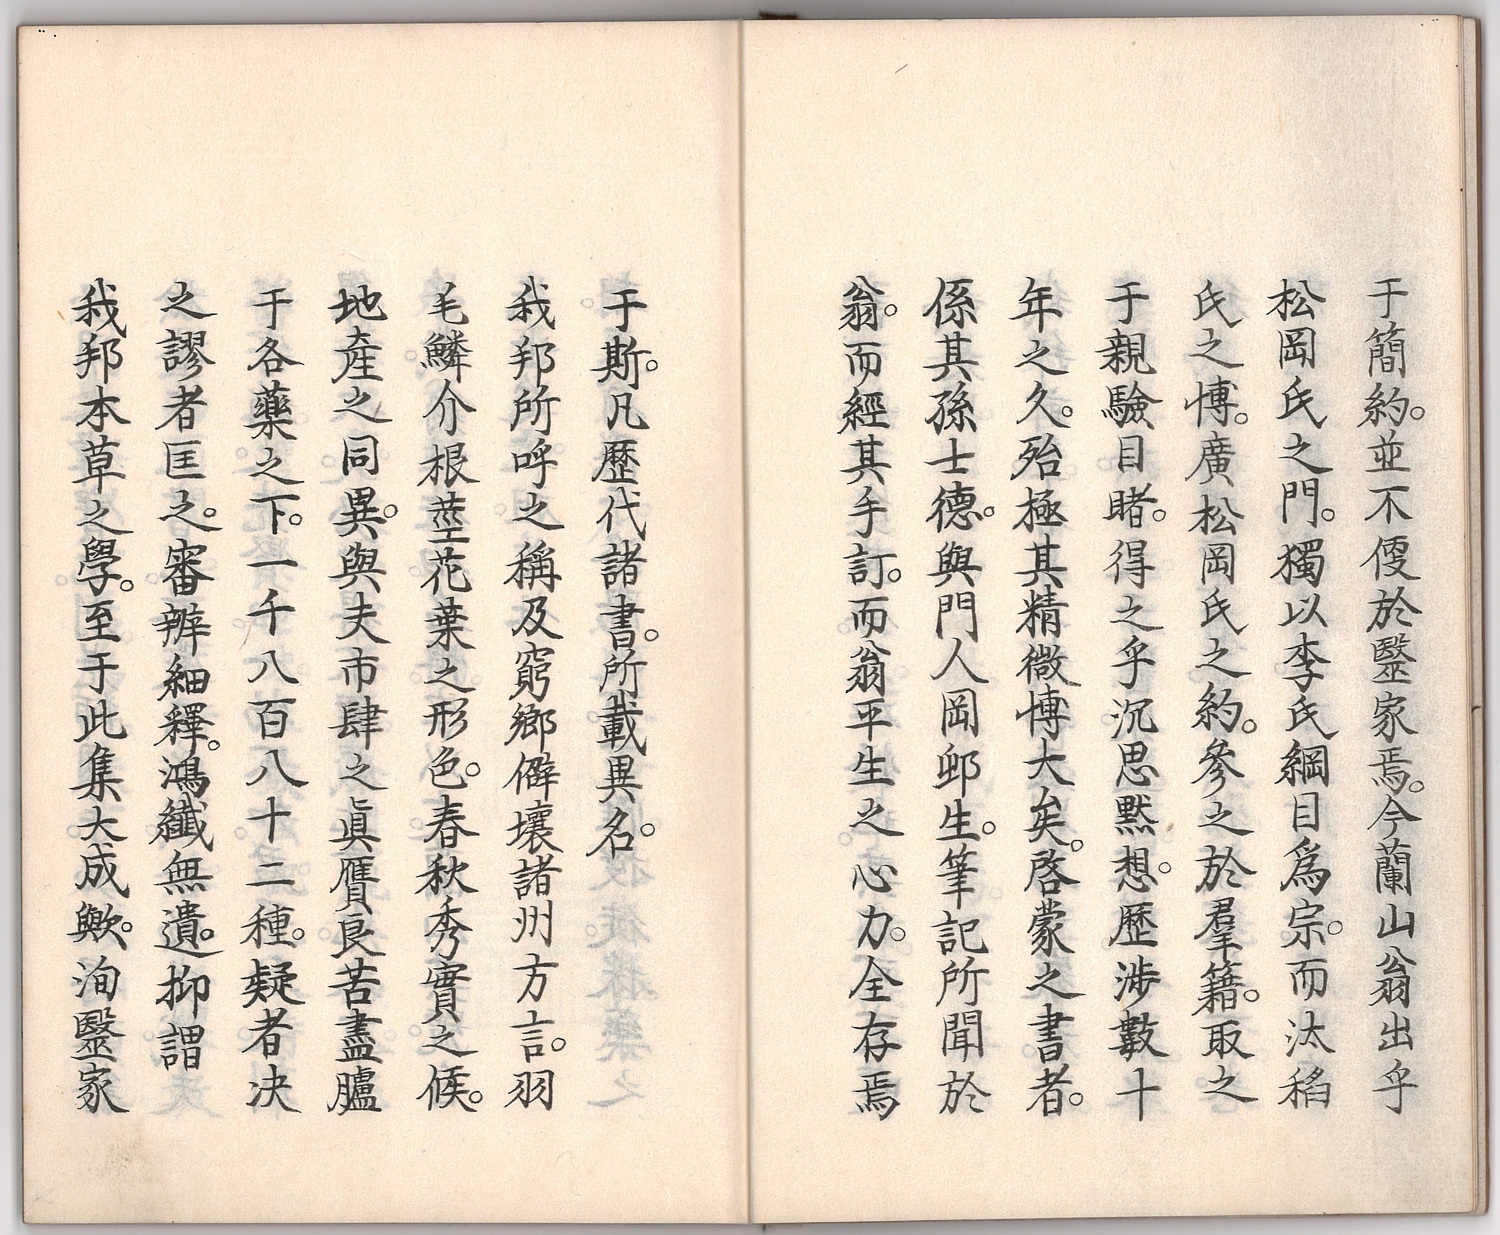 于簡約。並不便於毉家焉。今蘭山翁出乎
松岡氏之門。獨以李氏綱目爲宗。而汰稻
氏之博。廣松岡氏之約。參之於羣籍。取之
于親驗目睹。得之乎沉思默想。歷涉數十
年之久。殆極其精微博大矣。啓蒙之書者。
係其孫士德。與門人岡邨生。筆記所聞於
翁。而經其手訂。而翁平生之心力。全存焉
于斯。凡歷代諸書。所載異名。
我邦所呼之稱及窮鄉僻壤諸州方言。羽
毛鱗介根莖花葉之形色。春秋秀實之候。
地產之同異。與夫市肆之眞贋良苦盡臚
于各藥之下。一千八百八十二種。疑者决
之謬者匡之。審辨細釋。鴻纖無遺。抑謂
我邦本草之學。至于此集大成歟。洵毉家